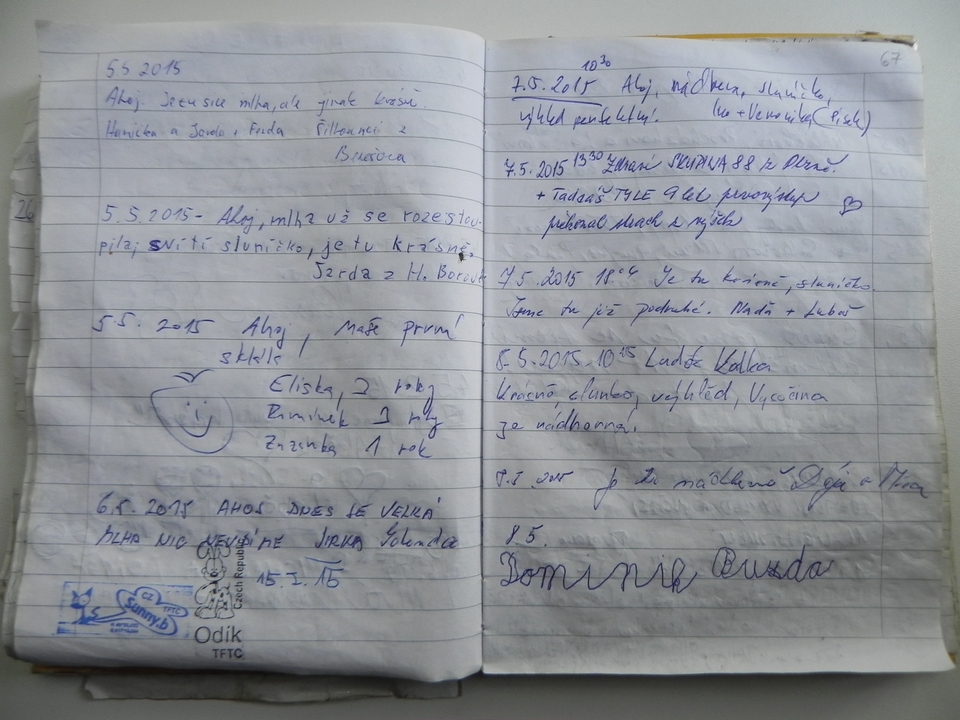 5.5 2015
Ahoj. Je tu sice mlha, ale jinak krásně.
Hanička a Jarda + Frida
5.5.2015 - Ahoj, mlha už se rozestou-
pila, svítí sluníčko, je tu krásně.
Jarda z H. Borové
5.5. 2015 Ahoj, naše první
skála!
Eliška, 3 roky
3 roky
Zuzanka 1 rok
6.5. 2015 AHOJ DNES JE VELKÁ
MLHA NIC NEVIDÍME JIRKA
15.5.15
CZ
TFTC
Sunny.b
Czech Republic
Odík
TFTC
67
10³⁰
7.5.2015 Ahoj, nádhera, sluníčko,
výhled perfektní. Iva + Veronika (Písek)
7.5.2015 13³⁰ Zdraví SKUPINA 88 z Plzně.
+ Tadeáš TYLE 9 let prvovýstup
překonal strach z výšek
7.5.2015 18 Je tu krásně, sluníčko.
Jsme tu již podruhé. Naďa + Luboš
8.5.2015. 10¹⁵ Luděk
Krásné slunko, výhled, Vysočina
je nádherná.
8.5. 2015 Je tu nádherně
8.5.
Dominik